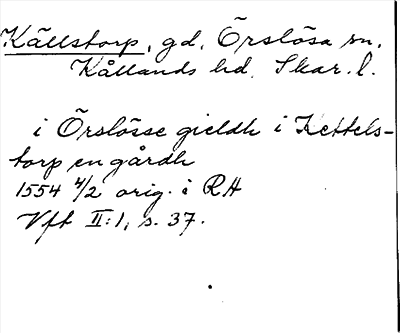 Källstorp, gd, Örslösa sn,
Kållands hd, Skar. l.
i Örslösse gieldh i Kettels-
torp en gårdh
1554 4/2 orig. i RA
Vft II:1, s. 37.